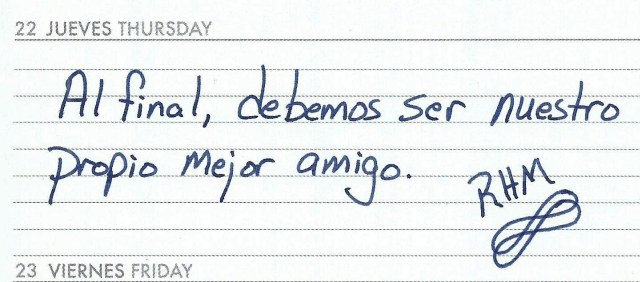 22 JUEVES THURSDAY
Al final, debemos ser nuestro
propio mejor amigo.
RHM
23 VIERNES FRIDAY